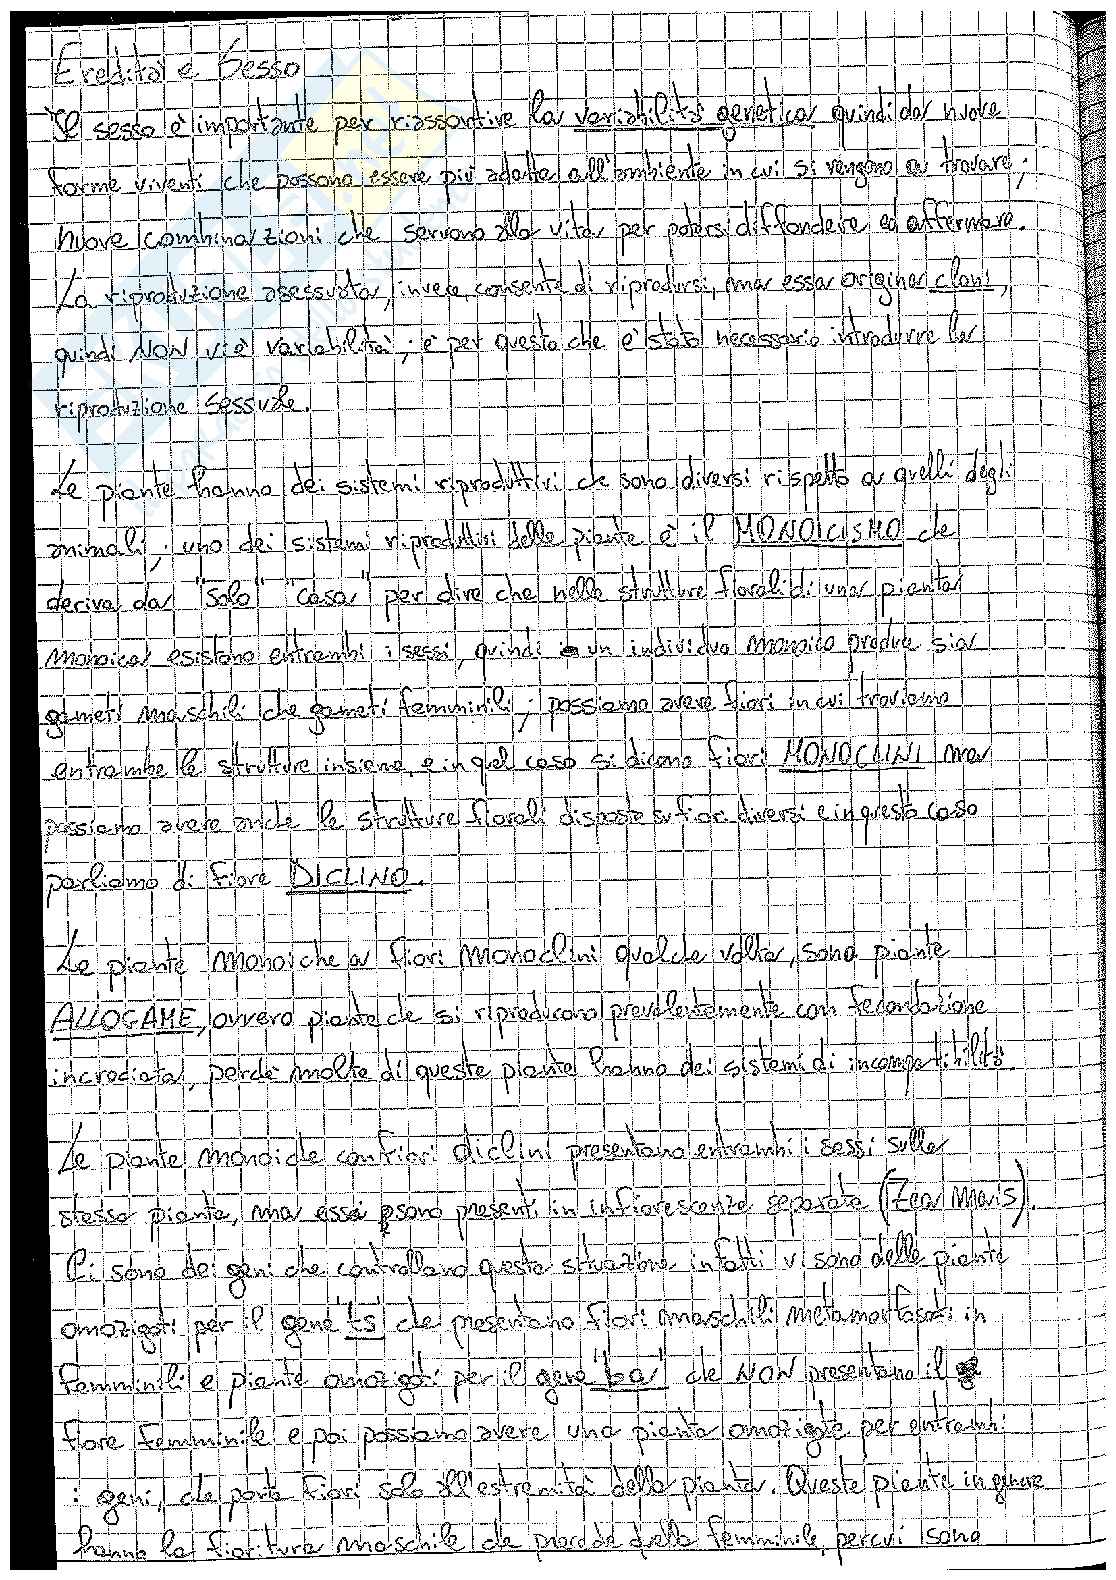 Eredità e Sesso
Il sesso è importante per riassortire la variabilità genetica quindi da nuove
forme viventi che possono essere più adatte all'ambiente in cui si vengono a trovare;
nuove combinazioni che servono alla vita per potersi diffondere ed affermare.
La riproduzione asessuata, invece, consente di riprodursi, ma essa origina cloni,
quindi NON vi è variabilità; è per questo che è stato necessario introdurre la
riproduzione sessuale.
Le piante hanno dei sistemi riproduttivi che sono diversi rispetto a quelli degli
animali; uno dei sistemi riproduttivi delle piante è il MONOICISMO che
deriva da "solo" "casa" per dire che nelle strutture fiorali di una pianta
monoica esistono entrambi i sessi, quindi un individuo monoico produce sia
gameti maschili che gameti femminili; possiamo avere fiori in cui troviamo
entrambe le strutture insieme, e in quel caso si dicono fiori MONOCLINI ma
possiamo avere anche le strutture fiorali disposte su fiori diversi e in questo caso
parliamo di fiore DICLINO.
Le piante monoiche a fiori monoclini qualche volta, sono piante
ALLOGAME, ovvero piante che si riproducono prevalentemente con fecondazione
incrociata, perché molte di queste piante hanno dei sistemi di incompatibilità.
Le piante monoiche con fiori diclini presentano entrambi i sessi sulla
stessa pianta, ma essi sono presenti in infiorescenze separate (Zea Mais).
Ci sono dei geni che controllano questa situazione infatti vi sono delle piante
omozigoti per il gene "ts" che presentano fiori maschili metamorfosati in
femminili e piante omozigoti per il gene "ba" che NON presentano il
fiore femminile e poi possiamo avere una pianta omozigote per entrambi
i geni, che porta fiori solo all'estremità della pianta. Queste piante in genere
hanno la fioritura maschile che precede quella femminile, per cui sono